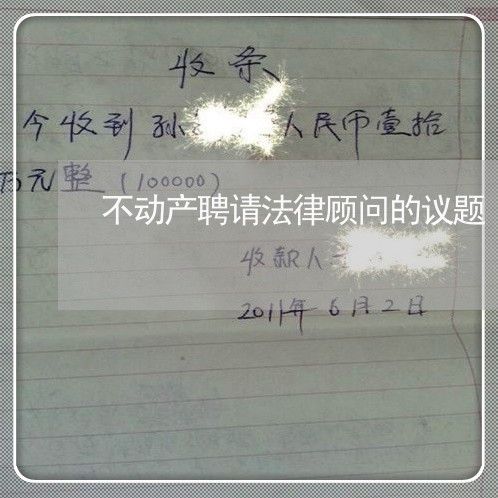 收条
今收到孙 人民币壹拾
万元整(100000)
不动产聘请法律顾问的议题
收款人
2011年6月2日